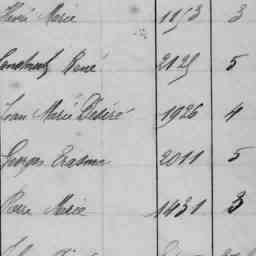 Henri Marie 1153 3
René 2125 5
Jean Marie Désiré 1926 4
Georges Erasme 2011 5
Pierre Marie 1431 3